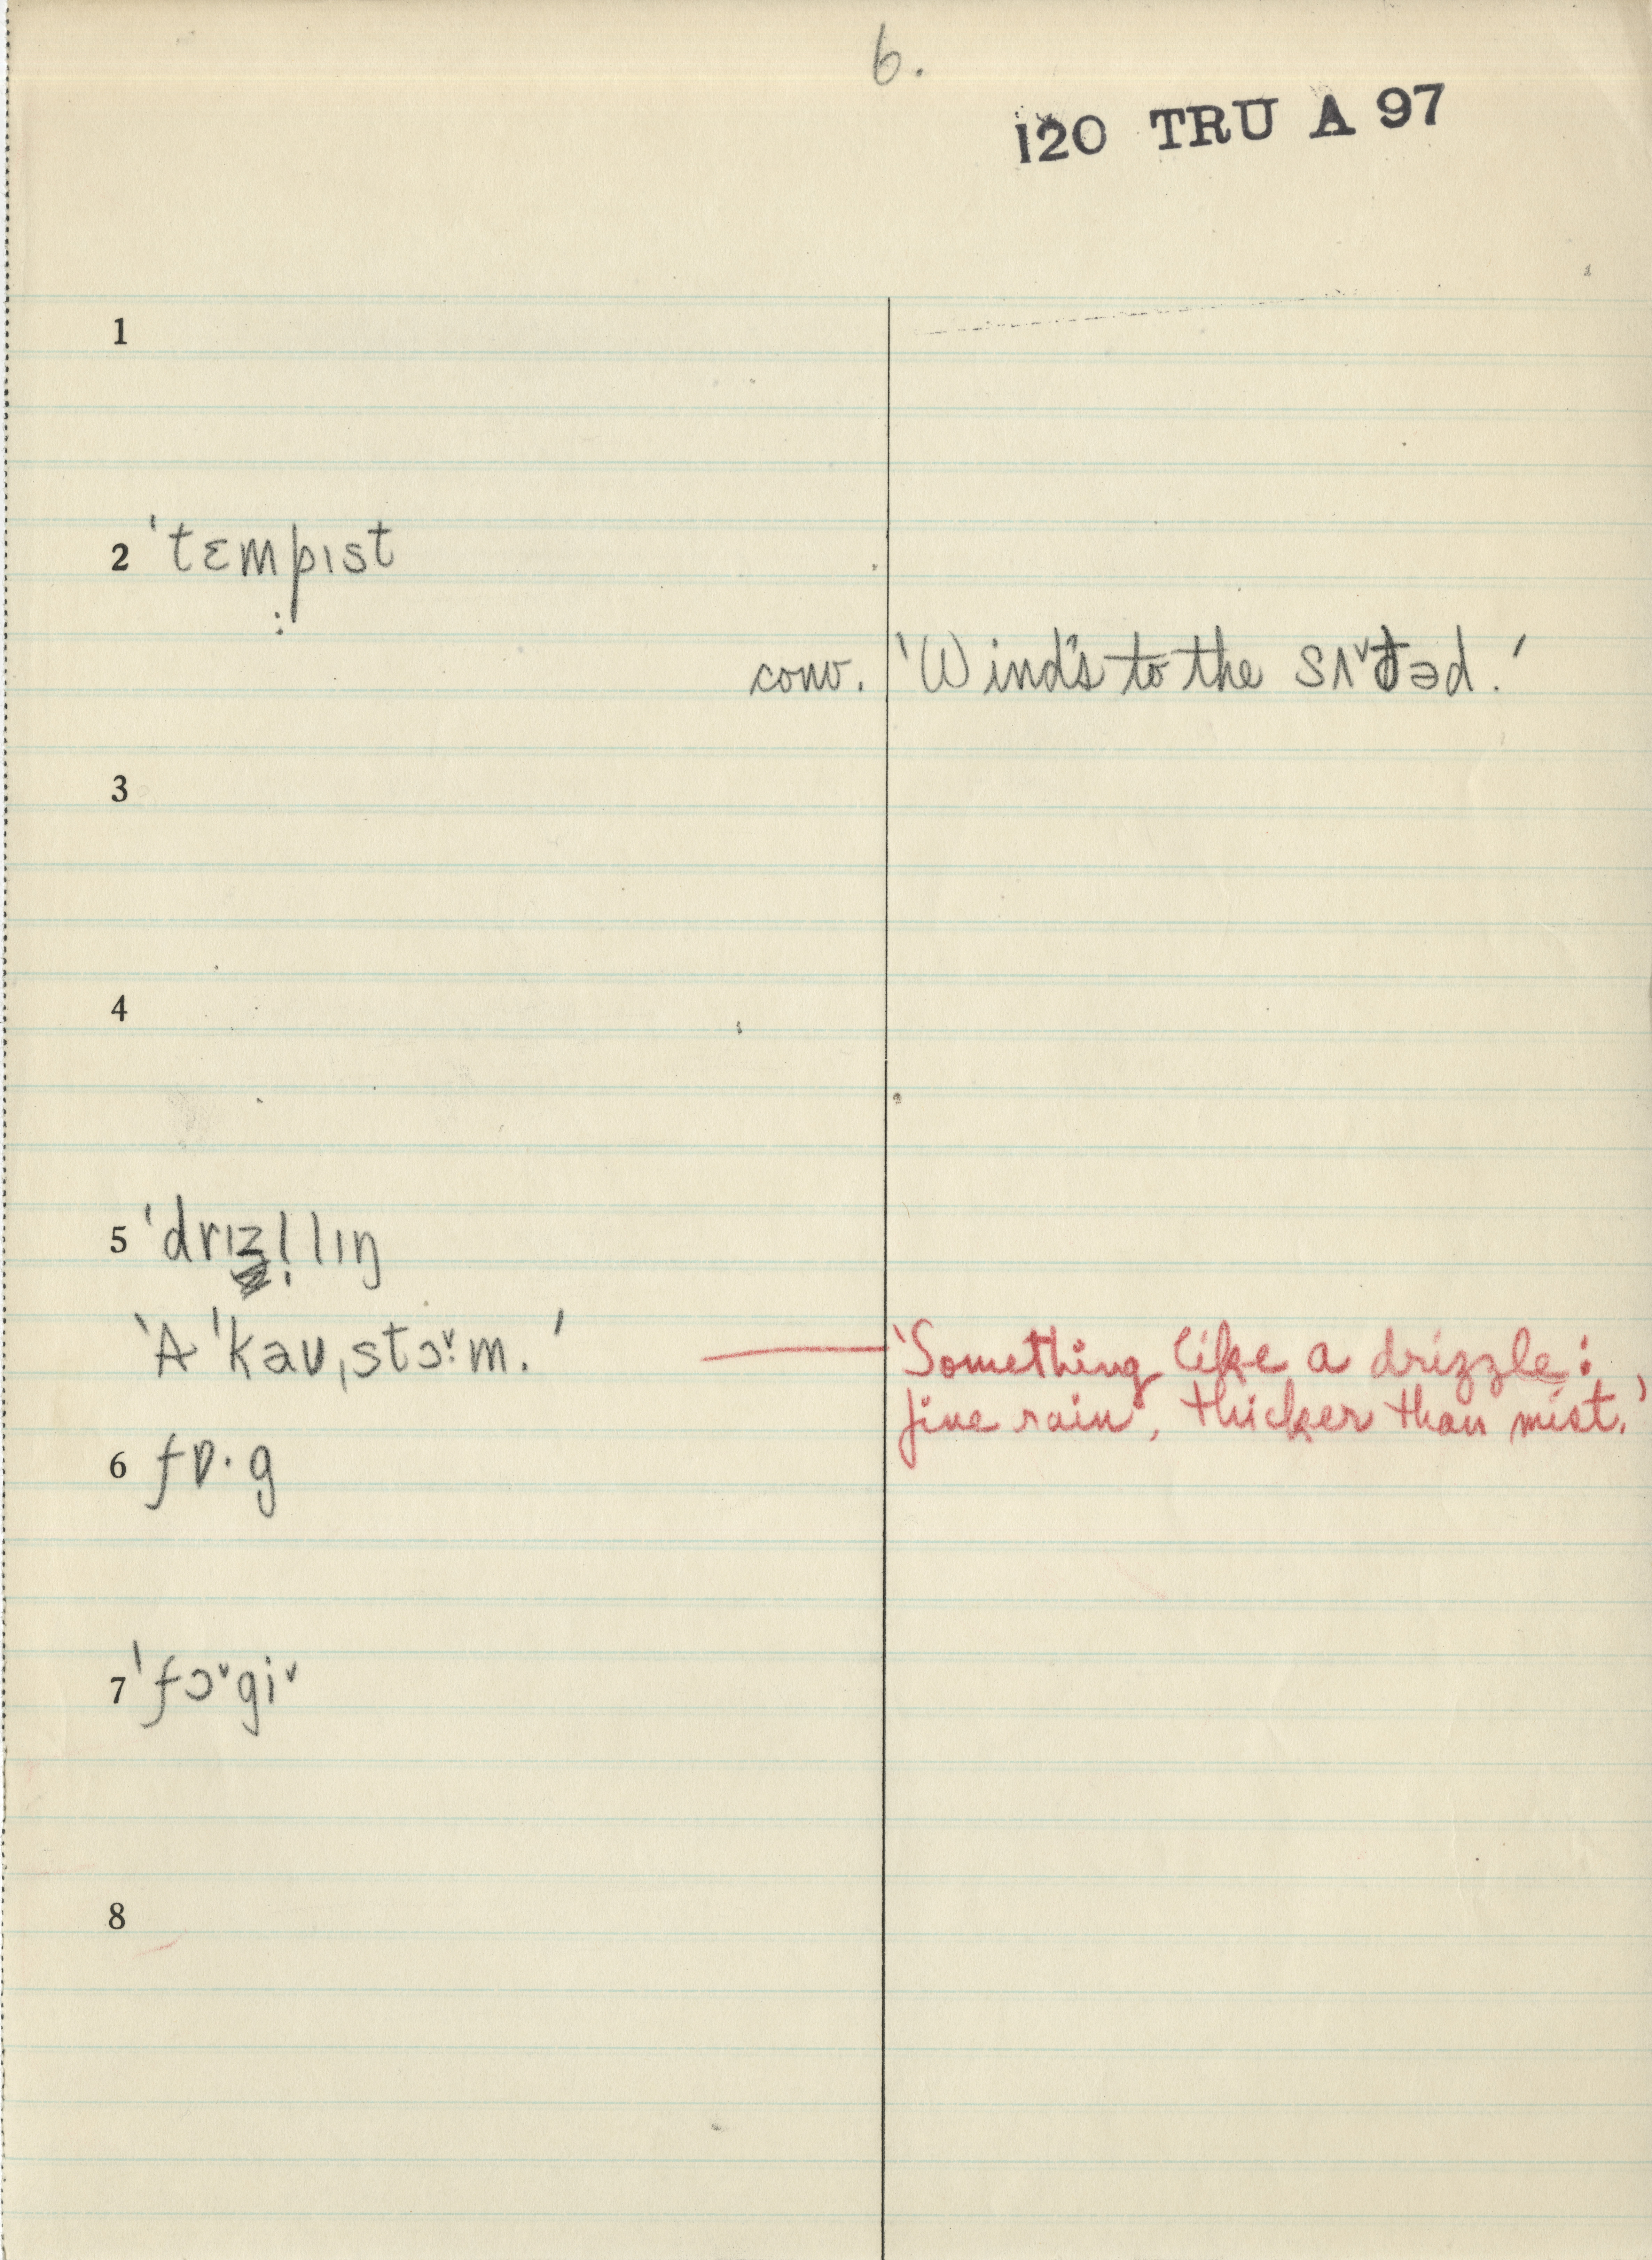 6.
120 TRU A 97
1
2 ˈtɛmpɪst
conv. 'Wind's to the sʌ˅ðəd.'
3
4
5 ˈdrɪzl̩lɪŋ
'A ˈkəʊˌstɔ˅:m.' 'Something like a drizzle:
fine rain, thicker than mist.'
6 fɒ·g
7 ˈfɔ˅gi˅
8